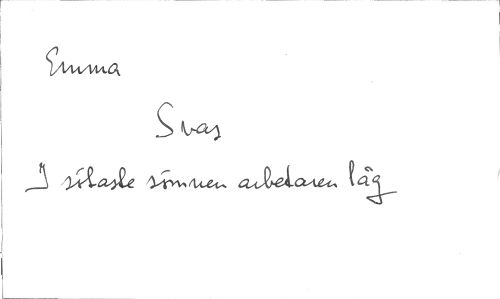 Emma
Svas
I sötaste sömnen arbetaren låg